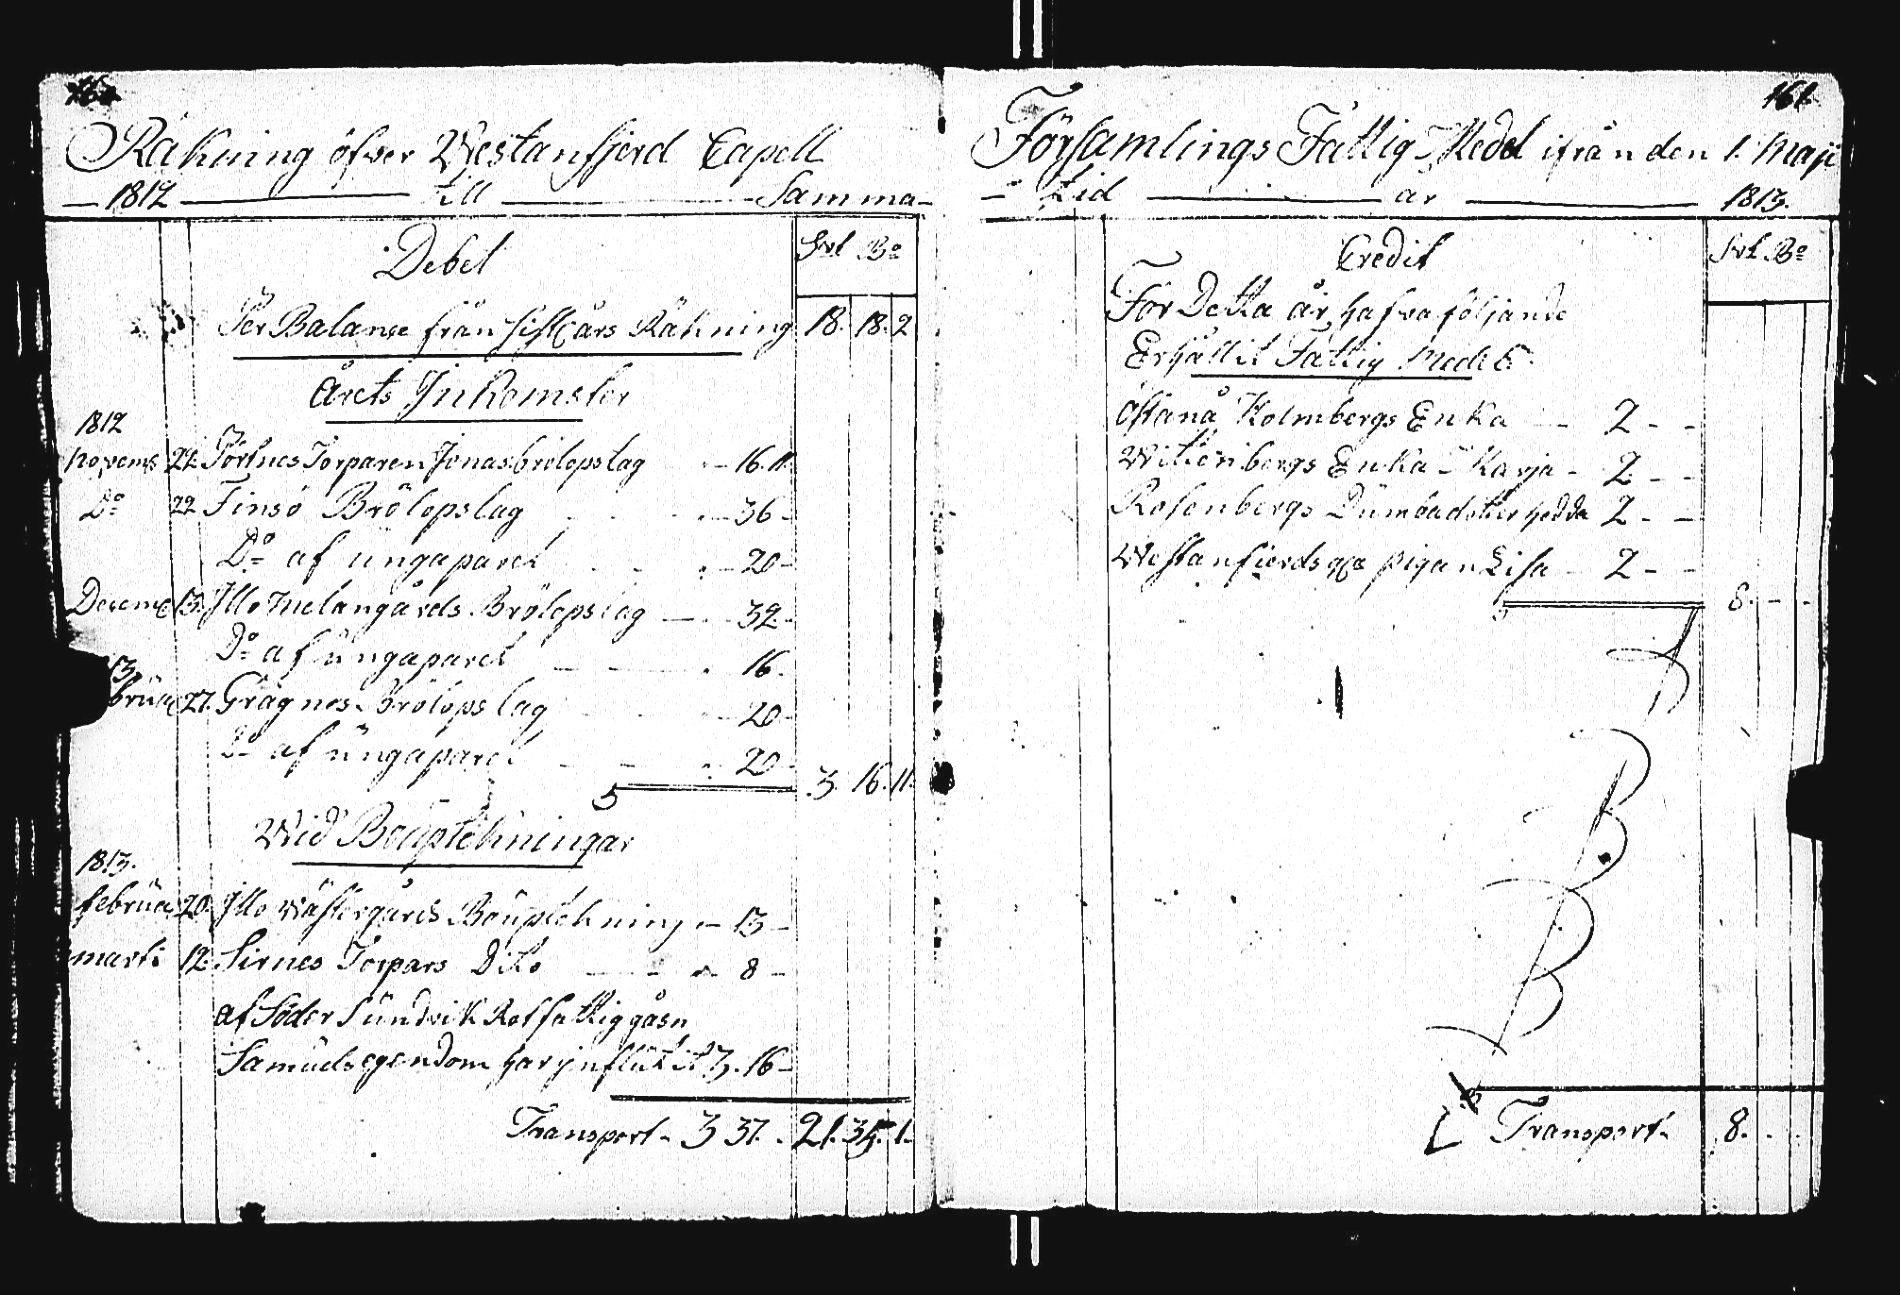 Räkning öfver Westanfjerd Capell
1812 till Samma
Debet
Srl Bo
Per Balance från sistl: års Räkning 18. 18. 2
årets Inkomster
1812
Novemb 22. Pörtnes Torparen Jonas brölopslag 16. 11.
Do 22 Finsö Brölopslag 36
Do af ungaparet 20
Decemb 13. Illo Melangårds Brölopslag 32
Do af ungaparet 16.
13.
brua 27. Grägnes Brölopslag 20
Do af ungaparet 20
3. 16. 11.
Wid Bouptekningar
1813.
februa 20. Illo Wästergårds Bouptekning 13
marti 12. Sirnes Torpars Dito 8
af Söder Sundvik Rotfattiggåsn
Samuels egendom har influtit 3. 16
Transport 3 37. 21. 35. 1
161
Församlings Fattig Medel ifrån den 1. Maji
tid år 1813.
Credit
Srl Bo
För Detta år hafva följande
Erhållit Fattig Medel
östanå Holmbergs Enka 2
Enka Karja 2
Rosenbergs Dumbadotter Hedda 2
Westanfjerds qva pigan Lisa 2
8.
Transport 8.